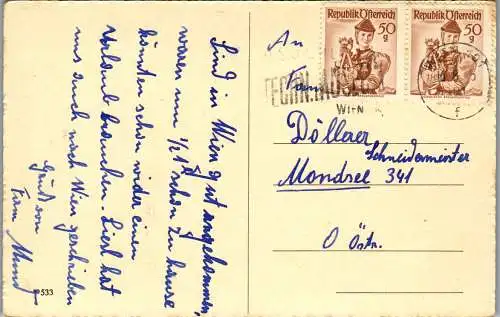 Sind in Wien gut angekommen,
waren um 1/2 1h schon zu hause
könnten schon wider einen
Urlaub brauchen. Liesl hat
uns auch nach Wien geschrieben
Gruß von
Fam.
533
An
Fam
Döllerer
Schneidermeister
Mondsee 341
O Östr.
Republik Österreich
50
g
Republik Österreich
50
g
WIEN